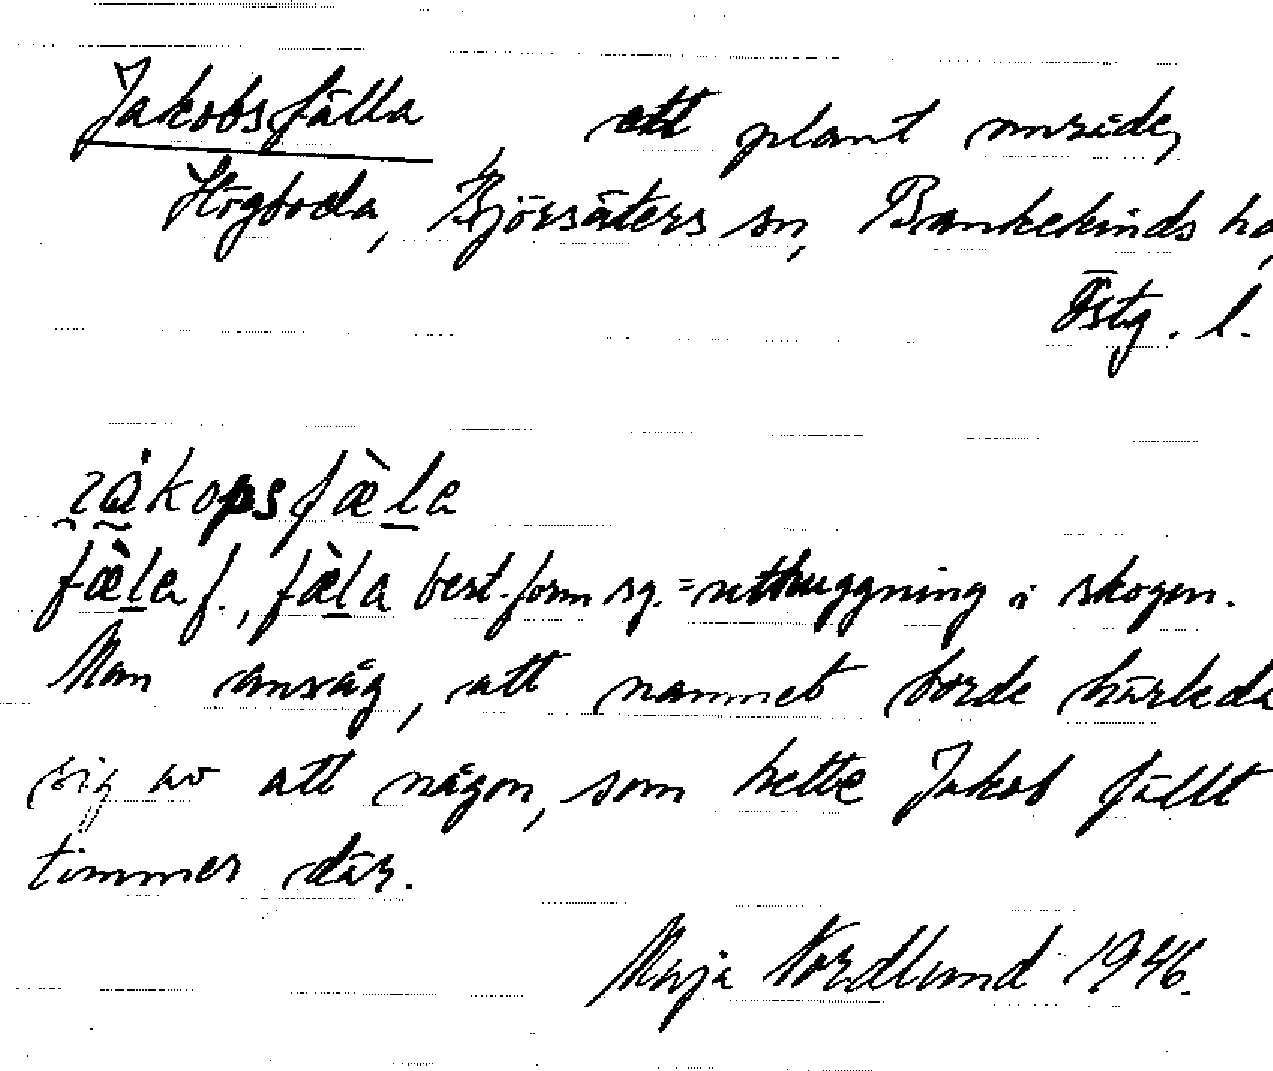 Jakobsfälla ett plant område,
Högboda, Björsäters sn, Bankekinds hd,
Östg. l.
jákopsfæ̀la
fæ̀la f., fæ̀la best. form sg. = uthuggning i skogen.
Man ansåg, att namnet borde härleda
sig av att någon, som hette Jakob fällt
timmer där.
Maja Nordlund 1946.